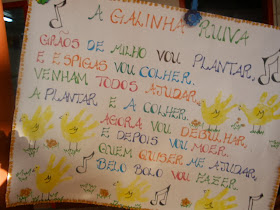 A GIALINHA RUIVA
GRÃOS DE MILHO VOU PLANTAR,
E ESPIGAS VOU COLHER.
VENHAM TODOS AJUDAR,
A PLANTAR E A COLHER.
AGORA VOU DEBULHAR,
E DEPOIS VOU MOER.
QUEM QUISER ME AJUDAR,
BELO BOLO VOU FAZER.